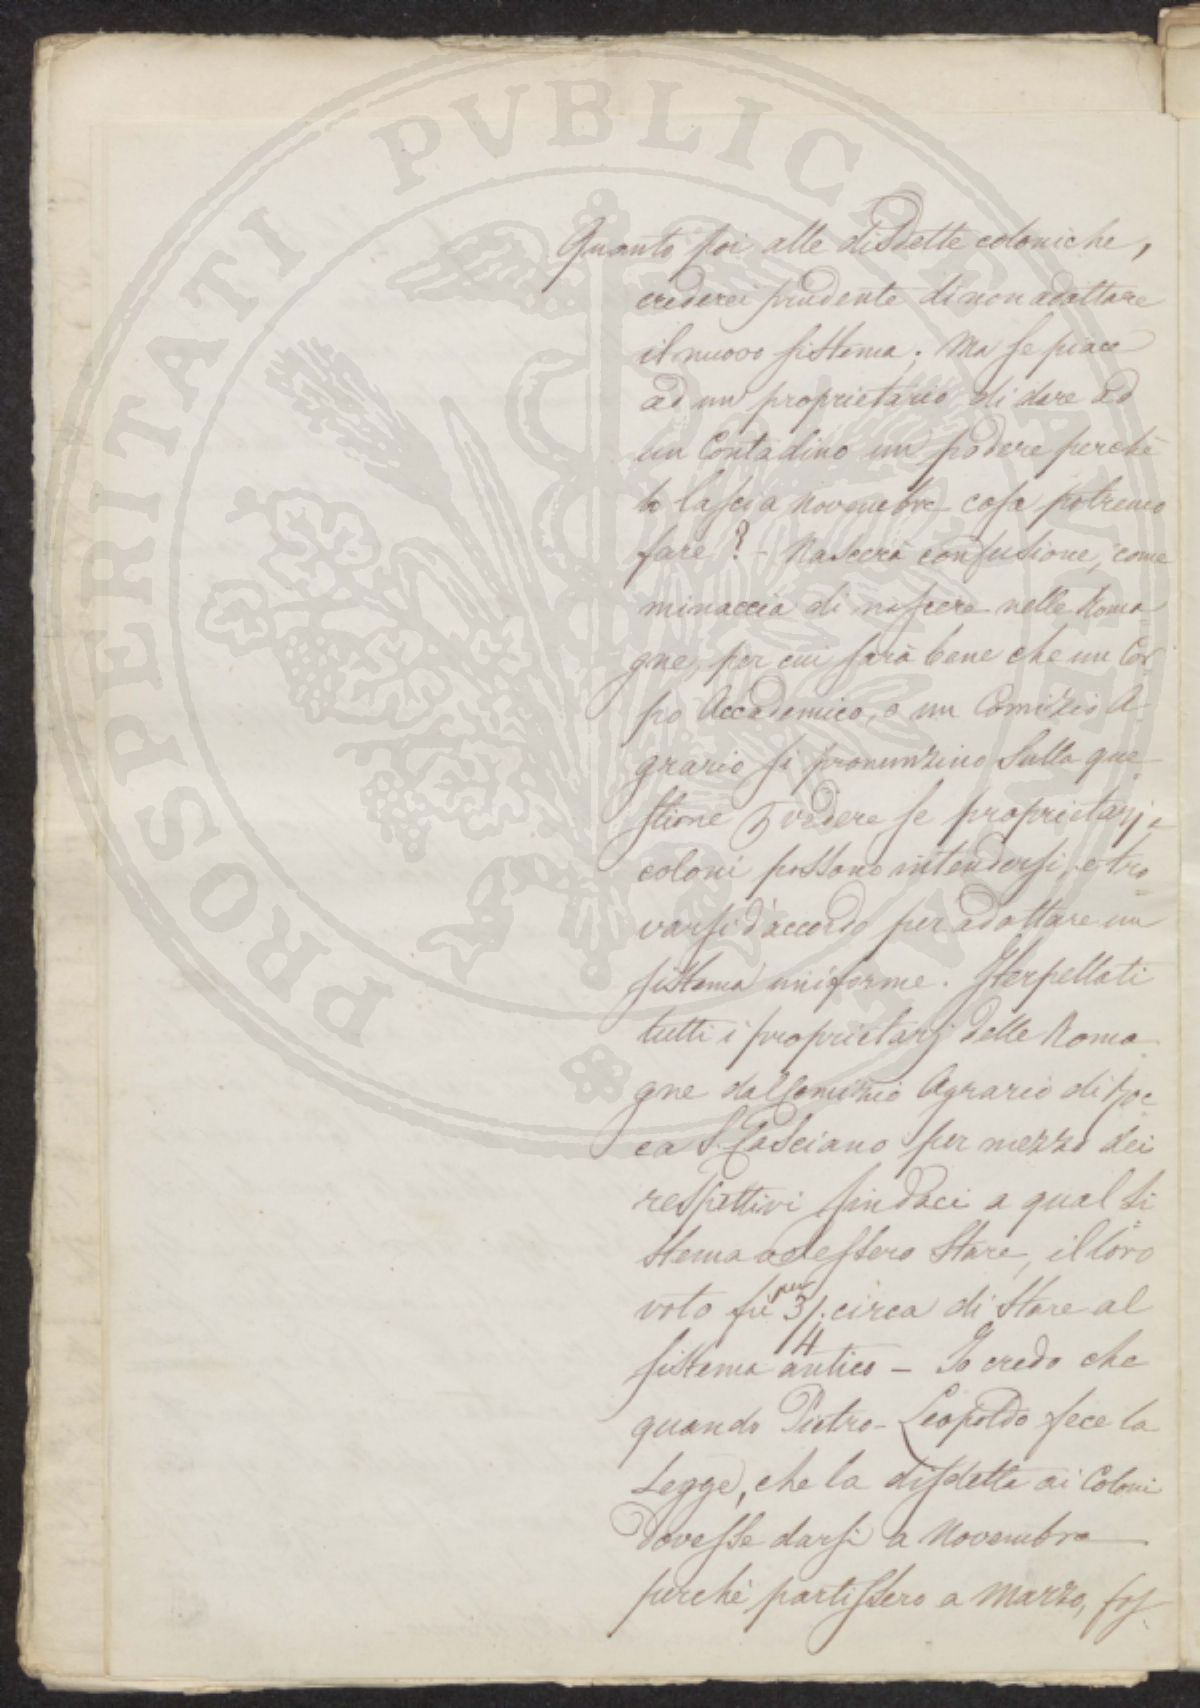 PROSPERITATI PUBLICAE AUGENDAE
Quanto poi alle disdette coloniche,
crederei prudente di non adottare
il nuovo sistema. Ma se piace
ad un proprietario di dare ad
un Contadino un podere perchè
lo lasci a Novembre cosa potremo
fare? - Nascerà confusione, come
minaccia di nascere nelle Roma-
gne, per cui sarà bene che un Cor
po Accademico, o un Comizio A-
grario si pronunzino sulla que-
stione vedere se proprietarj e
coloni possono intendersi, e tro-
varsi d'accordo per adottare un
sistema uniforme. Iterpellati
tutti i proprietarj delle Roma
gne dal Comizio Agrario di Roc
ca S. Casciano per mezzo dei
respettivi sindaci a qual si
stema volessero stare, il loro
voto fù per 3/4 circa di stare al
sistema antico - Io credo che
quando Pietro-Leopoldo fece la
Legge, che la disdetta ai Coloni
dovesse darsi a Novembre
perchè partissero a Marzo, fos-